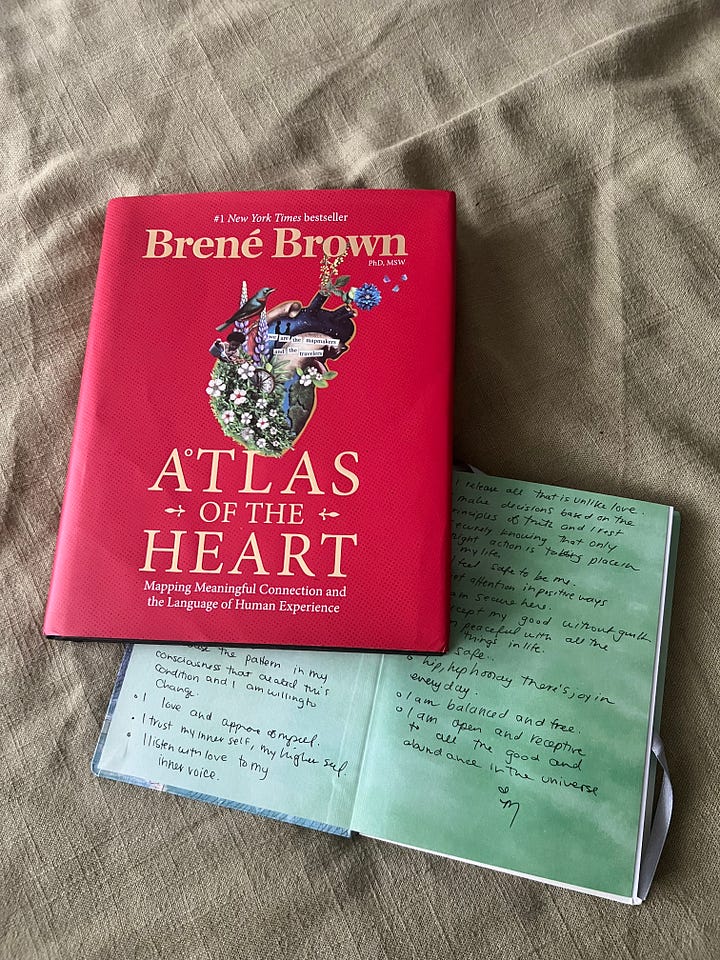 #1 New York Times bestseller
Brené Brown
PhD, MSW
we are the mapmakers
and the travelers
ATLAS
OF THE
HEART
Mapping Meaningful Connection and
the Language of Human Experience
the pattern in my
consciousness that created this
condition and I am willing to
change.
I love and approve of myself.
I trust my inner self, my higher self.
I listen with love to my
inner voice.
I release all that is unlike love.
make decisions based on the
principles of truth and I rest
securely knowing that only
right action is taking place in
my life.
feel safe to be me.
get attention in positive ways
am secure here.
accept my good without guilt
peaceful with all the
things in life.
safe.
hip, hip hooray there's joy in
everyday.
I am balanced and free.
I am open and receptive
to all the good and
abundance in the universe
M